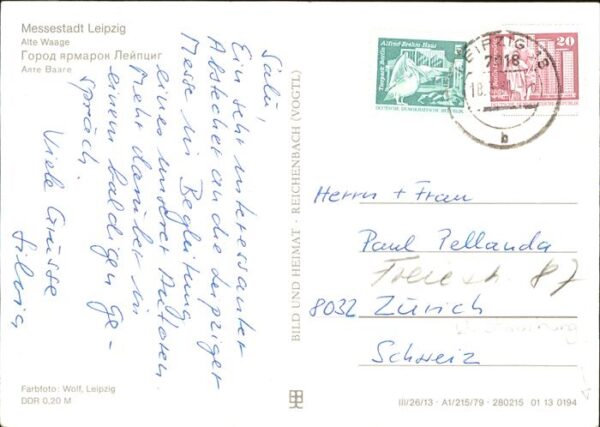 Messestadt Leipzig
Alte Waage
Город ярмарок Лейпциг
Алте Вааге
Salü,
Ein sehr interessanter
Abstecher an die Leipziger
Messe in Begleitung
eines unserer Autoren.
Mehr darüber in
einem baldigen Ge-
spräch.
Viele Grüsse
Silvia
Farbfoto: Wolf, Leipzig
DDR 0,20 M
BILD UND HEIMAT · REICHENBACH (VOGTL)
Alfred-Brehm-Haus
Tierpark Berlin
5
DEUTSCHE DEMOKRATISCHE REPUBLIK
20
LEIPZIG 18
7018
18.
b
Herrn + Frau
Paul Pellanda
Freiestr. 87
8032 Zürich
Schweiz
III/26/13 · A1/215/79 · 280215 01 13 0194